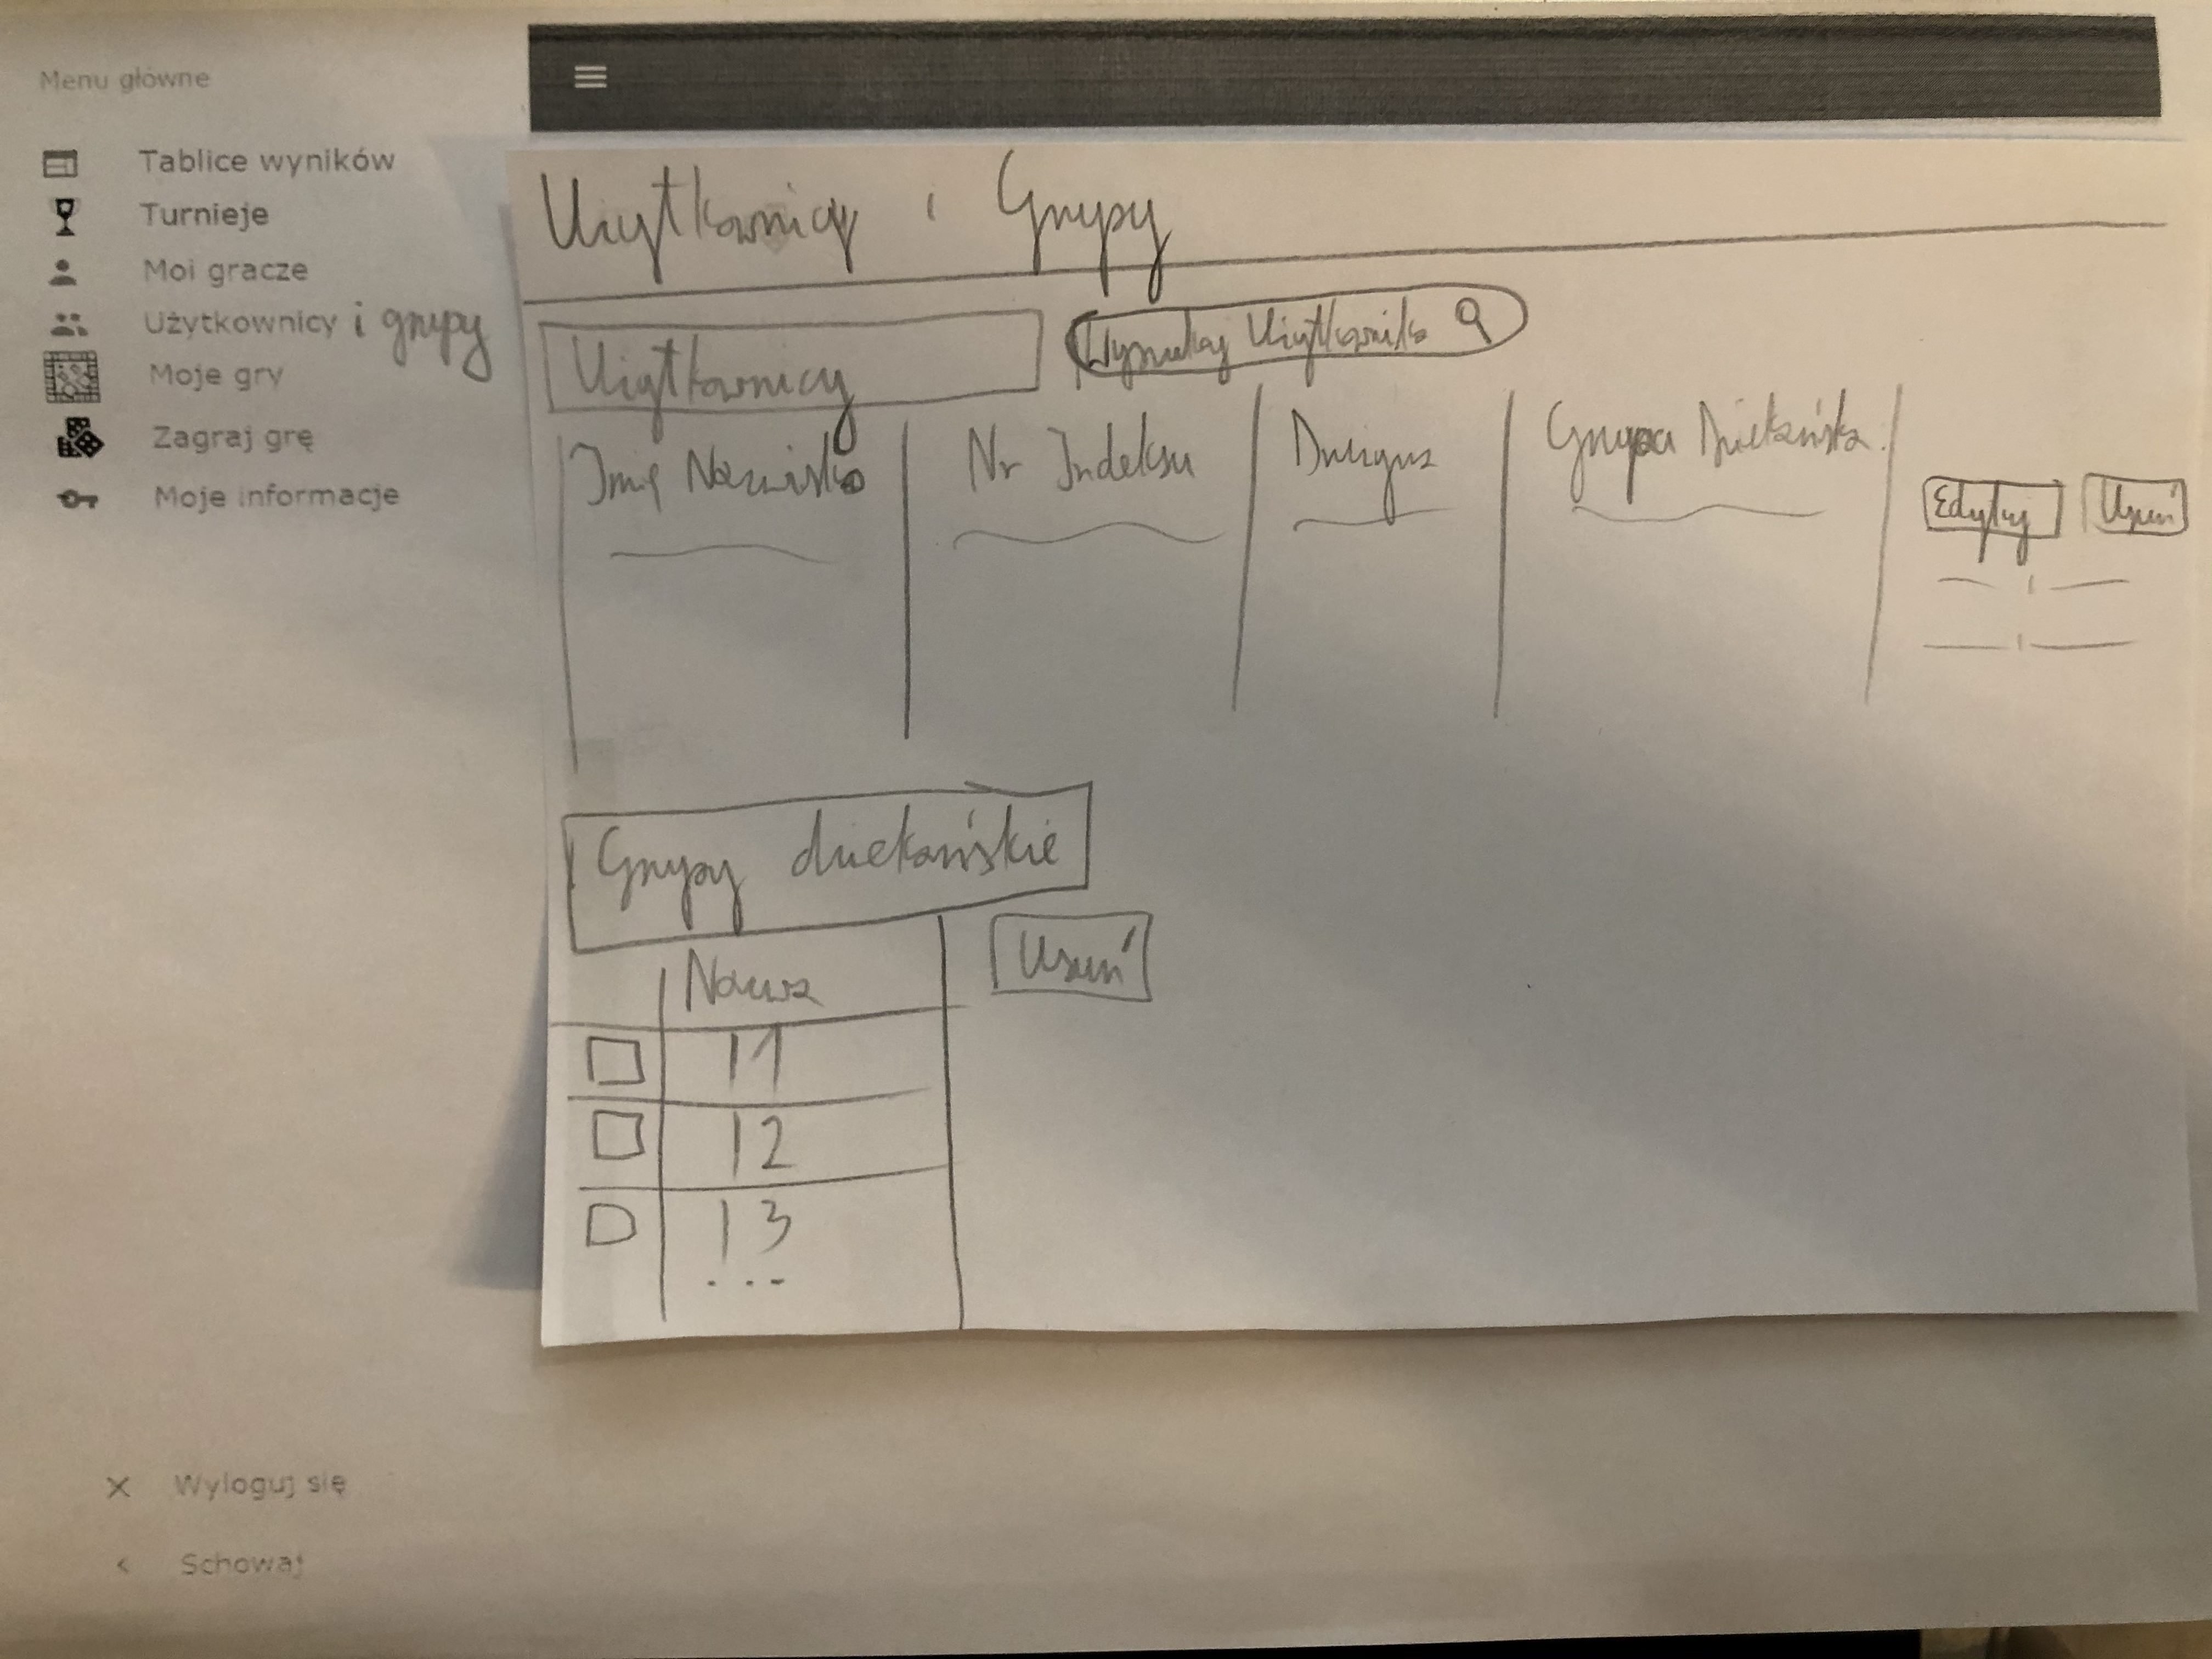 Menu główne
Tablice wyników
Turnieje
Moi gracze
Użytkownicy i grupy
Moje gry
Zagraj grę
Moje informacje
Użytkownicy i Grupy
Użytkownicy
Wyszukaj Użytkownika
Imię Nazwisko
Nr Indeksu
Drużyna
Grupa Dziekańska
Edytuj
Usuń
Grupy dziekańskie
Nazwa
Usuń
11
12
13
...
Wyloguj się
Schowaj